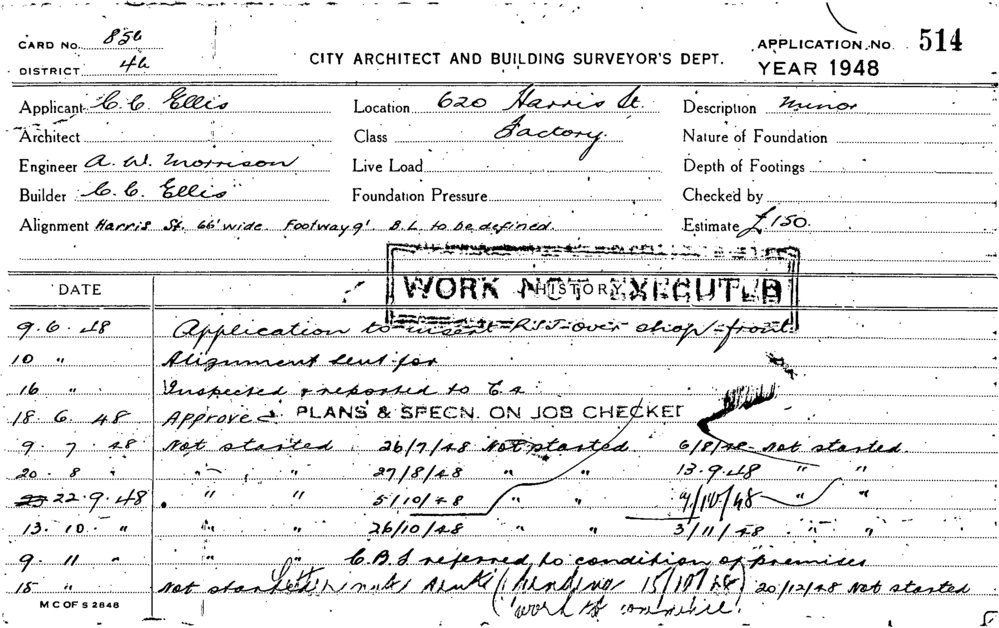 CARD NO. 856
DISTRICT 46
CITY ARCHITECT AND BUILDING SURVEYOR'S DEPT.
APPLICATION NO. 514
YEAR 1948
Applicant C. C. Ellis Location 620 Harris St. Description Minor
Architect Class Factory. Nature of Foundation
Engineer A. W. Morrison Live Load Depth of Footings
Builder C. C. Ellis Foundation Pressure Checked by
Alignment Harris St. 66' wide Footway 9' B.L. to be defined. Estimate £150.
WORK NOT EXECUTED
DATE HISTORY
9.6.48 Application to insert R.S.J. over shop-front
10 " Alignment sent for
16 " Inspected & reported to
18.6.48 Approved PLANS & SPECN. ON JOB CHECKED
9.7.48 Not started 26/7/48 Not started 6/8/48 Not started
20.8 " " " 27/8/48 " " 13.9.48 " "
22.9.48 " " 5/10/48 " " /48 " "
13.10. " " " 26/10/48 " " 3/11/48 " "
9. 11 " " " C.B.S. referred to condition of premises
15 " Not started 15/10/48) 20/12/48 Not started
work to
M C OF S 2848